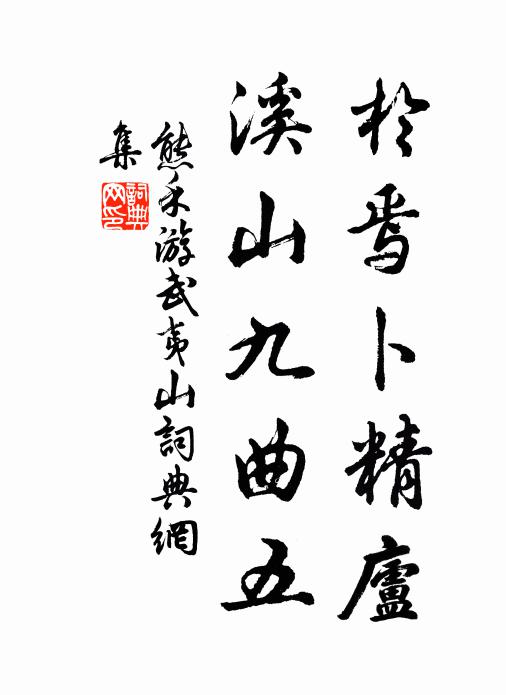 於焉卜精廬
溪山九曲五
熊禾游武夷山詞典網
集
詞典
网印